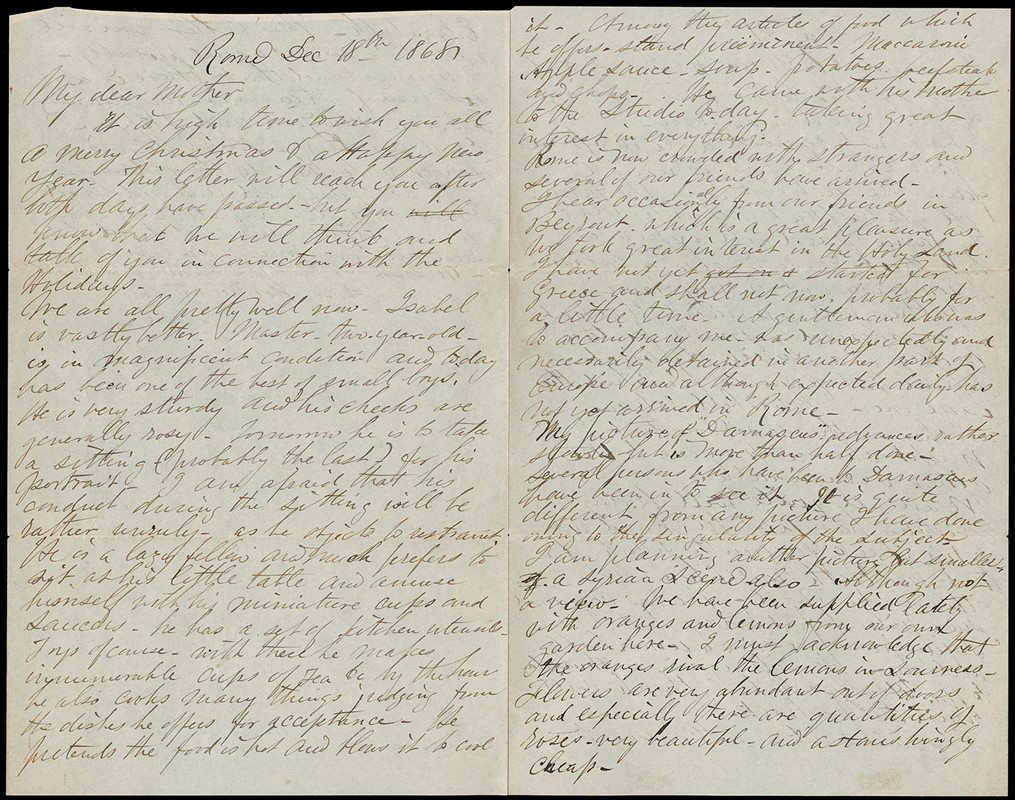 Rome Dec 18th 1868
My dear Mother
It is high time to wish you all
a Merry Christmas & a Happy New
Year. This letter will reach you after
both days have passed - but you will
know that we will think and
talk of you in connection with the
Holidays -
We are all pretty well now - Isabel
is vastly better. Master - two-year-old -
is in magnificent condition and today
has been one of the best of small boys.
He is very sturdy and his cheeks are
generally rosy - Tomorrow he is to take
a sitting (probably the last) for his
portrait - I am afraid that his
conduct during the sitting will be
rather unruly - as he objects to restraint.
He is a lazy fellow and much prefers to
sit at his little table and amuse
himself with his miniature cups and
saucers - he has a set of kitchen utensils -
Toys of course - with these he makes
innumerable cups of Tea &c by the hour
he also cooks many things judging from
the dishes he offers for acceptance - He
pretends the food is hot and blows it to cool
it - Among the articles of food which
he offers - stand preeminent - Maccaroni
Apple sauce - soup - potatoes beefsteak
and chops - He came with his mother
to the Studio today - taking great
interest in everything.
Rome is now crowded with strangers and
several of our friends have arrived -
I hear occasionally from our friends in
Beyrout. which is a great pleasure as
we took great interest in the Holy Land.
I have not yet got on a started for
Greece and shall not now. probably for
a little time - A gentleman who was
to accompany me - was unexpectedly and
necessarily detained in another part of
Europe and although expected daily has
not yet arrived in Rome -
My picture of "Damascus" advances rather
slowly - but is more than half done -
Several persons who have been to Damascus
have been in to see it. It is quite
different from any picture I have done
owing to the singularity of the subject
I am planning another picture but smaller -
of a Syrian Scene also - Although not
a view - We have been supplied lately
with oranges and lemons from our own
garden here - I must acknowledge that
the oranges rival the lemons in sourness -
Flowers are very abundant out of doors
and especially there are quantities of
roses - very beautiful - and astonishingly
cheap -